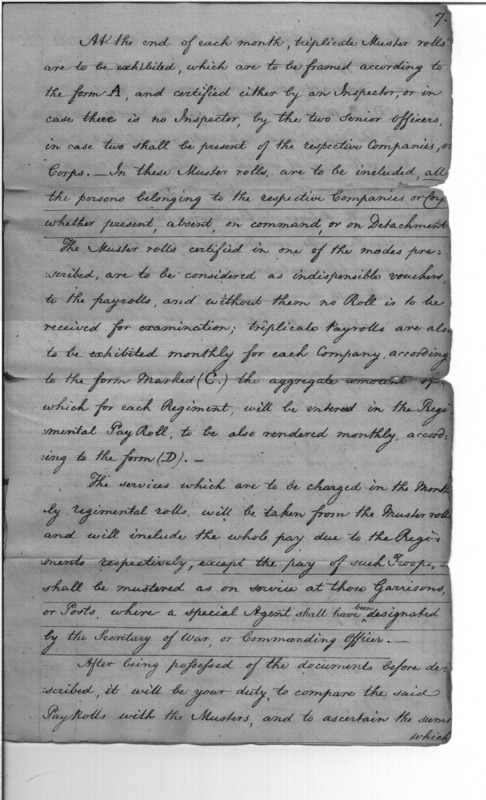 7.
At the end of each month, triplicate Muster rolls
are to be exhibited, which are to be framed according to
the form A, and certified either by an Inspector, or in
case there is no Inspector, by the two Senior officers,
in case two shall be present of the respective Companies, or
Corps. — In these Muster rolls, are to be included, all
the persons belonging to the respective Companies or Corps
whether present, absent, on command, or on Detachment
The Muster rolls certified in one of the modes pre:
:scribed, are to be considered as indispensible vouchers,
to the payrolls, and without them no Roll is to be
received for examination; triplicate Payrolls are also
to be exhibited monthly for each Company, according
to the form Marked (C.) the aggregate amount of
which for each Regiment, will be entered in the Regi
mental Pay Roll, to be also rendered monthly, accord:
:ing to the form (D). —
The services which are to be charged in the Month
ly regimental rolls, will be taken from the Muster rolls
and will include the whole pay due to the Regi=
ments respectively, except the pay of such Troops, as
shall be mustered as on service at those Garrisons,
or Posts, where a special Agent shall have been designated
by the Secretary of War, or Commanding Officer. —
After being possessed of the documents before de:
:scribed, it will be your duty, to compare the said
Pay Rolls with the Musters, and to ascertain the sums
which